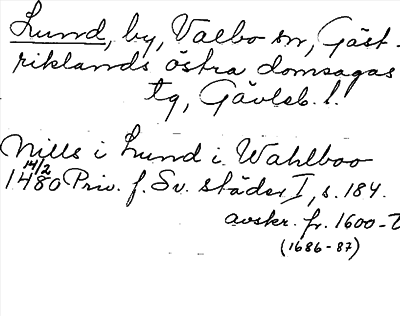 Lund, by, Valbo sn, Gäst-
riklands östra domsagas
tg, Gävleb. l.
Nills i Lund i Wahlboo
14/2
1480 Priv. f. Sv. städer I, s. 184.
avskr. fr. 1600-t
(1686-87)